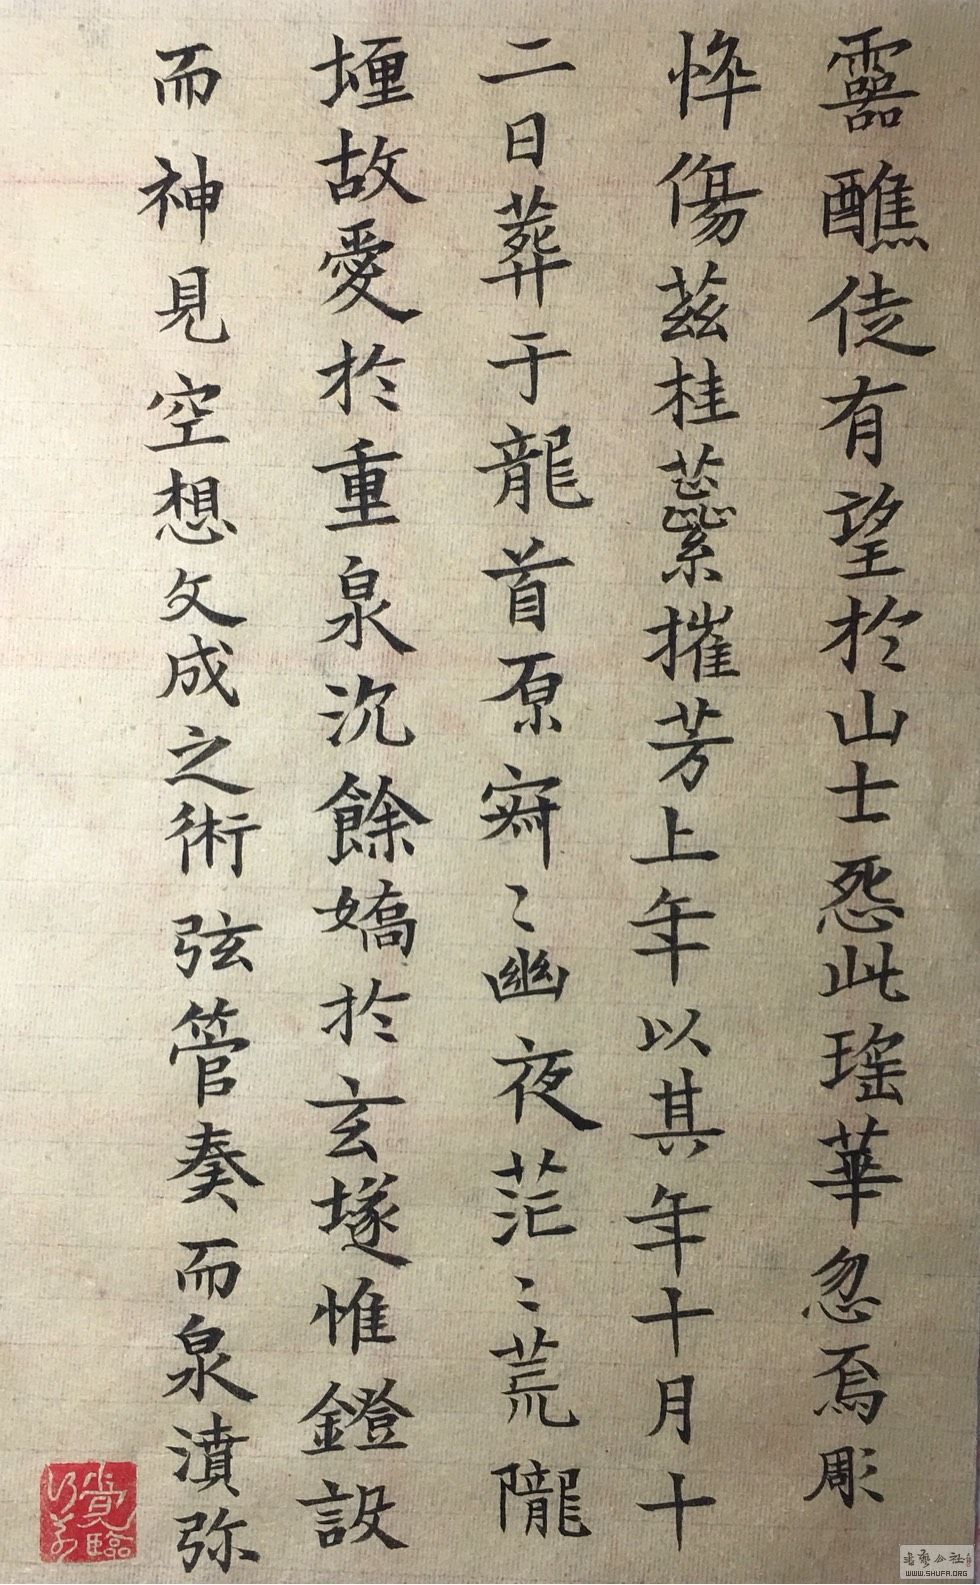 靈醮徒有望於山士怨此瑤華忽焉彫
悴傷茲桂蘂摧芳上年以其年十月十
二日葬于龍首原寂〻幽夜茫〻荒隴
埋故愛於重泉沉餘嬌於玄墜惟鐙設
而神見空想文成之術弦管奏而泉濆弥
覺臨
書藝公社
WWW.SHUFA.ORG